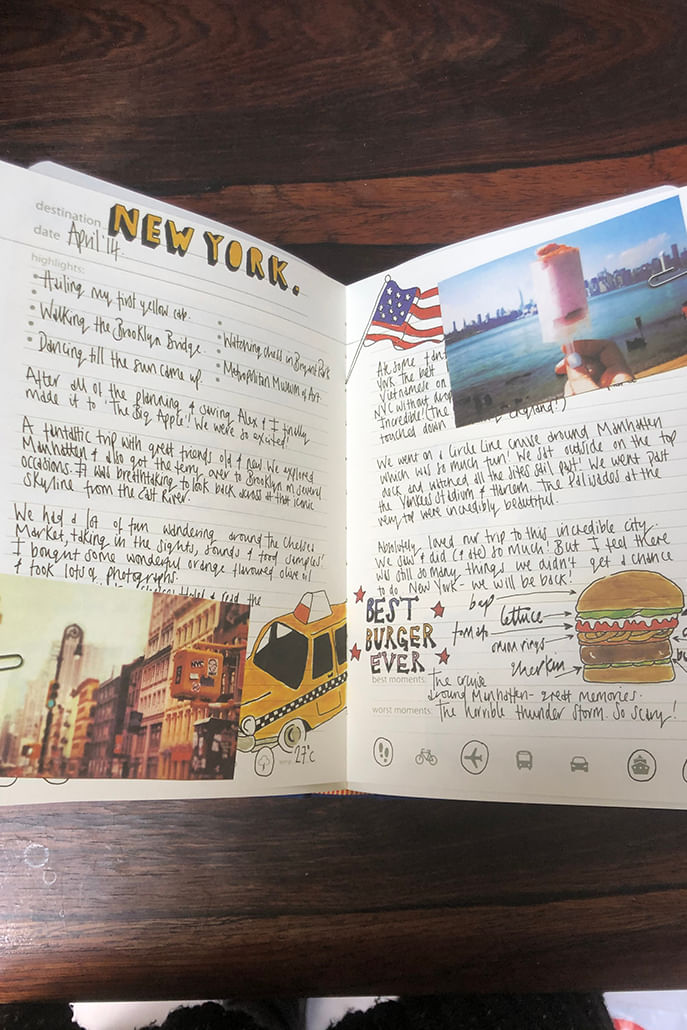 destination NEW YORK.
date April '14
highlights:
• Hailing my first yellow cab.
• Walking the Brooklyn Bridge.
• Dancing till the sun came up.
• Watching chess in Bryant Park
• Metropolitan Museum of Art
After all of the planning & saving Alex & I finally
made it to 'The Big Apple'! We were so excited!
A fantastic trip with great friends old & new. We explored
Manhattan & also got the ferry over to Brooklyn on several
occasions. It was breathtaking to look back across at that iconic
skyline from the East River.
We had a lot of fun wandering around the Chelsea
Market, taking in the sights, sounds & food samples!
I bought some wonderful orange flavoured olive oil
& took lots of photographs.
the
NYC
27°c
Ate some
York. The best
Vietnamese on
NYC without
Incredible! (The
touched down England!)
We went on a Circle Line Cruise around Manhattan
which was so much fun! We sat outside on the top
deck and watched all the sites sail past! We went past
the Yankees Stadium & Harlem. The Palisades at the
very top were incredibly beautiful.
Absolutely loved our trip to this incredible city.
We saw & did (& ate) so much! But I feel there
was still so many things we didn't get a chance
to do. New York - we will be back!
BEST
BURGER
EVER
bap
lettuce
tomato
onion rings
gherkin
best moments: The cruise
around Manhattan - great memories.
worst moments: The horrible thunder storm. So scary!